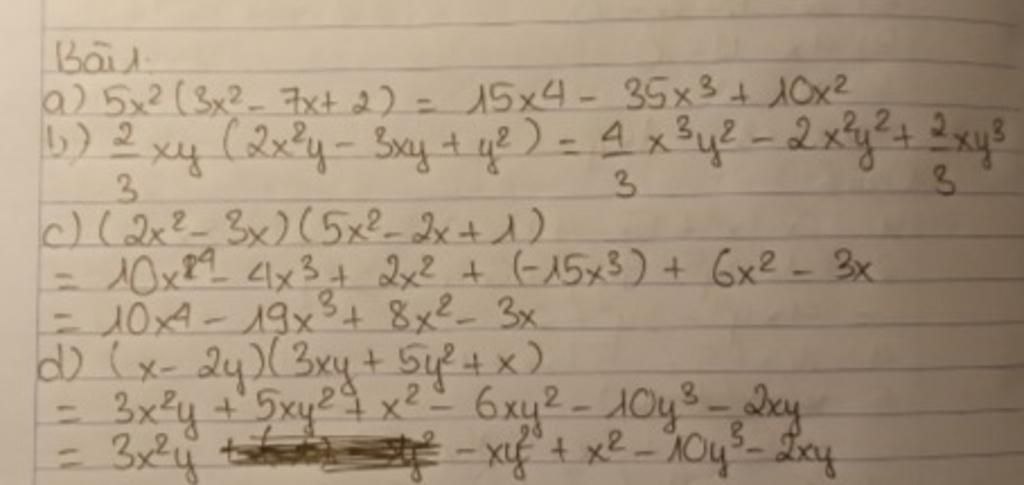 Bài 1.
a) 5x²(3x² - 7x + 2) = 15x4 - 35x³ + 10x²
b) 2/3 xy (2x²y - 3xy + y²) = 4/3 x³y² - 2x²y² + 2/3 xy³
c) (2x² - 3x)(5x² - 2x + 1)
= 10x⁴ - 4x³ + 2x² + (-15x³) + 6x² - 3x
= 10x4 - 19x³ + 8x² - 3x
d) (x - 2y)(3xy + 5y² + x)
= 3x²y + 5xy² + x² - 6xy² - 10y³ - 2xy
= 3x²y - xy² + x² - 10y³ - 2xy